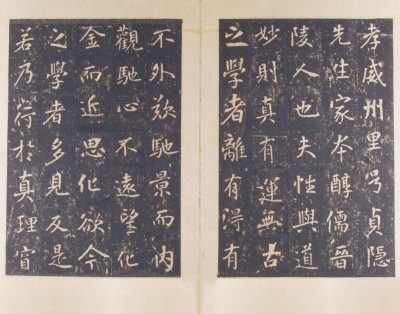 孝威州里号貞隱
先生家本醇儒晉
陵人也夫性與道
妙則真有運無古
之學者離有淂有
不外欻馳景而内
觀馳心不遠望化
金而近思化欲今
之學者多見反是
若乃行於真理窅